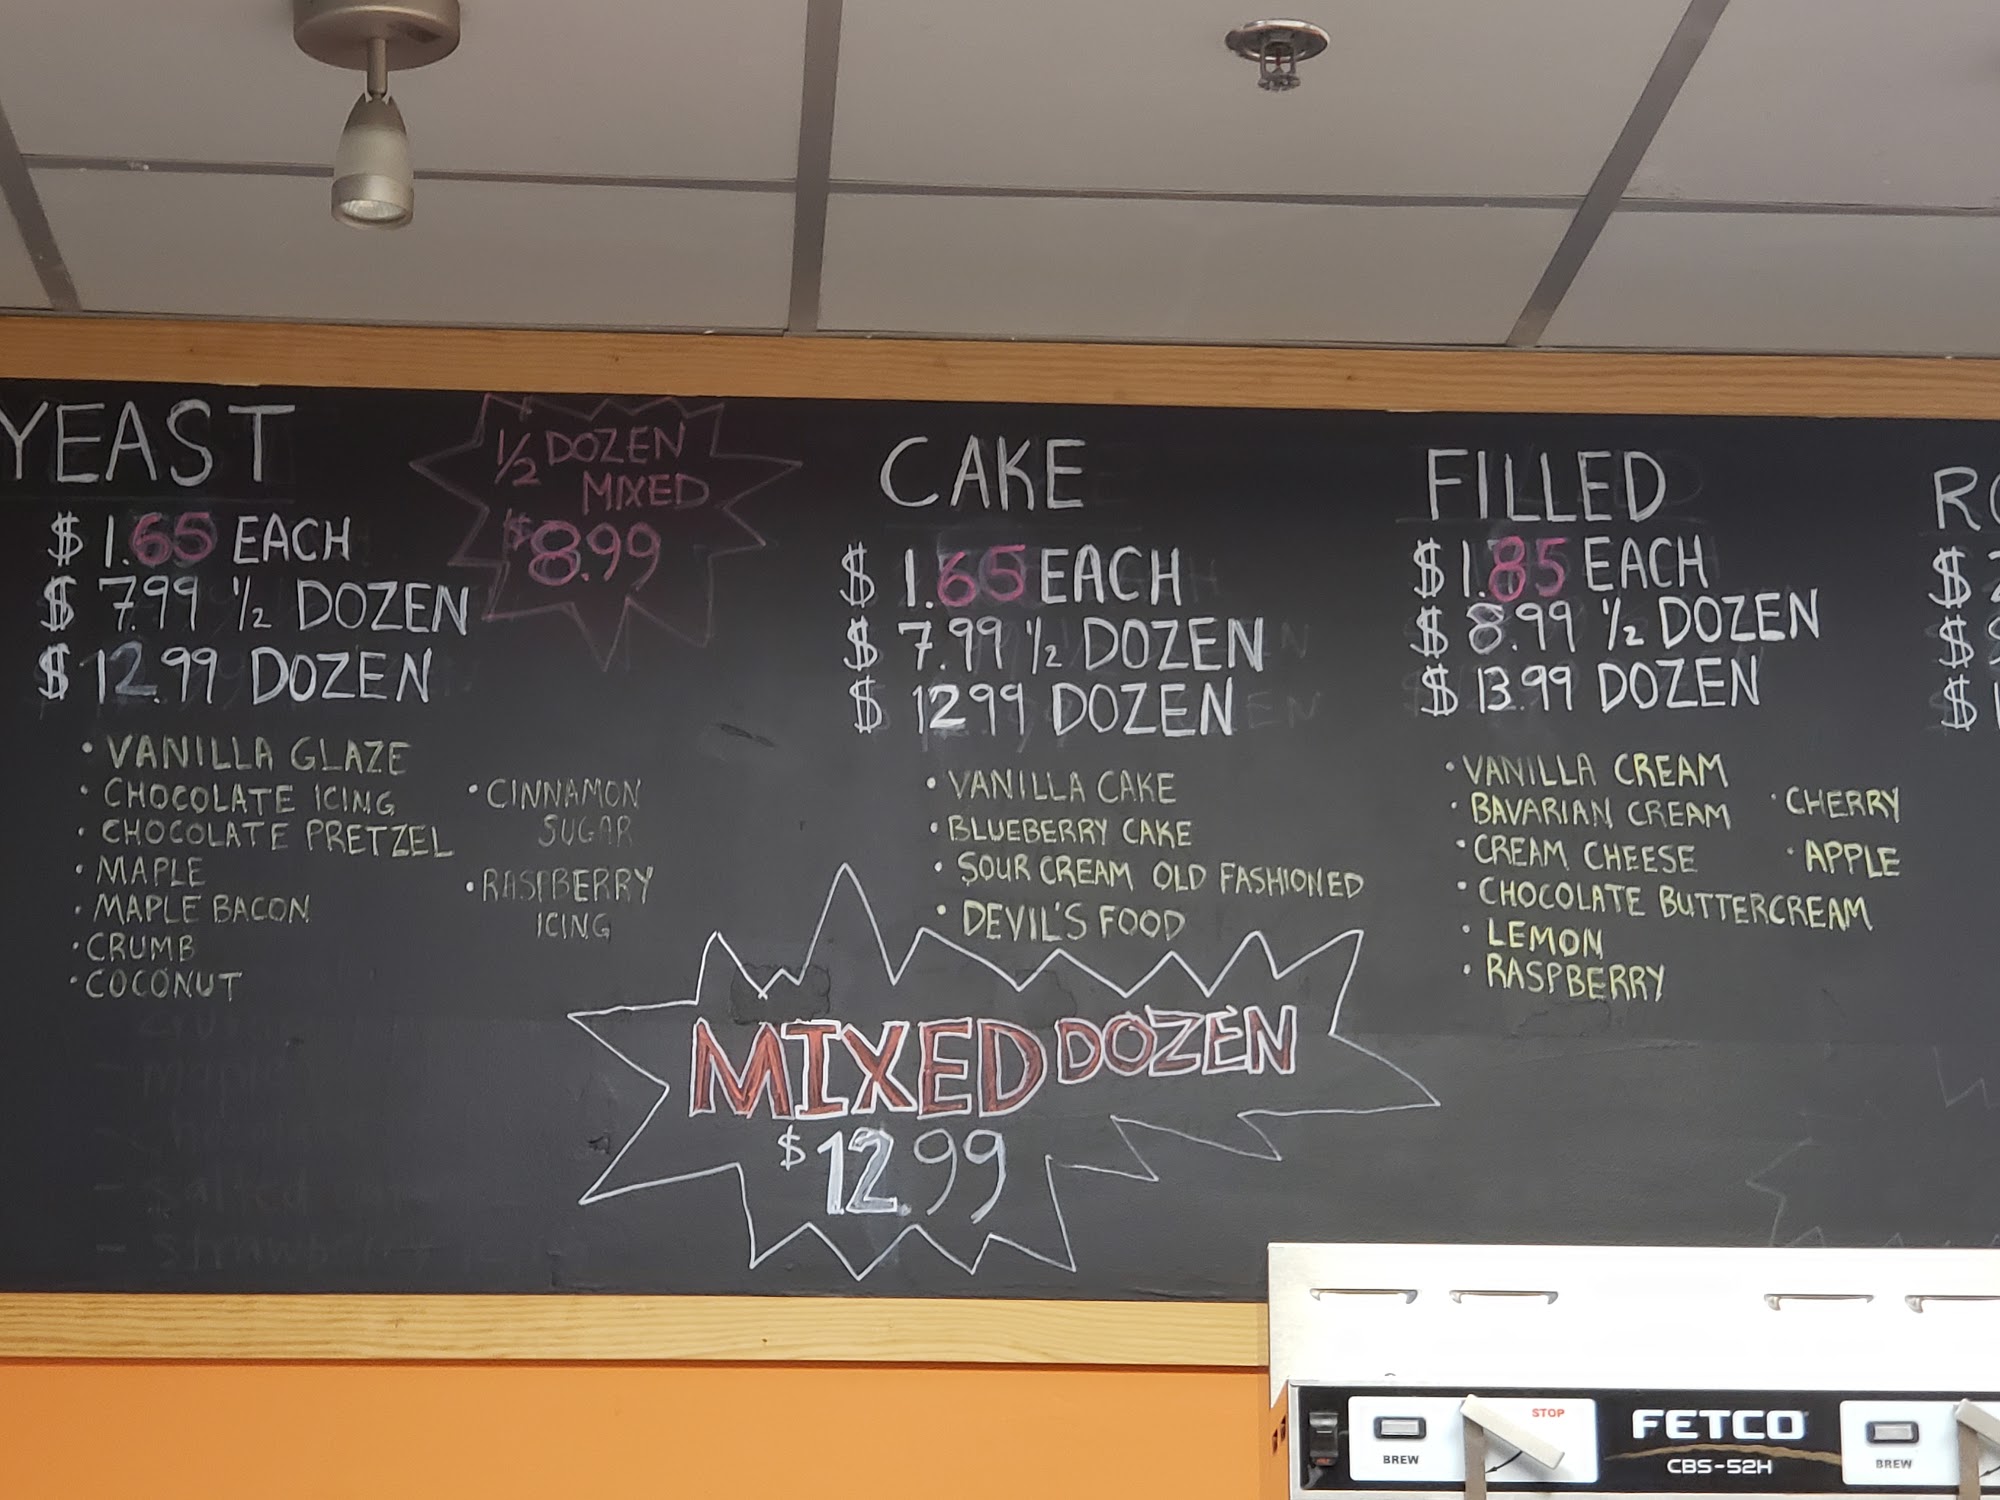 YEAST
$ 1.65 EACH
$ 7.99 ½ DOZEN
$ 12.99 DOZEN
• VANILLA GLAZE
• CHOCOLATE ICING
• CHOCOLATE PRETZEL
• MAPLE
• MAPLE BACON
• CRUMB
• COCONUT
• CINNAMON
SUGAR
• RASPBERRY
ICING
½ DOZEN
MIXED
$8.99
CAKE
$ 1.65 EACH
$ 7.99 ½ DOZEN
$ 1299 DOZEN
• VANILLA CAKE
• BLUEBERRY CAKE
• SOUR CREAM OLD FASHIONED
• DEVIL'S FOOD
MIXED DOZEN
$12.99
FILLED
$ 1.85 EACH
$ 8.99 ½ DOZEN
$ 13.99 DOZEN
• VANILLA CREAM
• BAVARIAN CREAM
• CREAM CHEESE
• CHOCOLATE BUTTERCREAM
• LEMON
• RASPBERRY
• CHERRY
• APPLE
BREW
STOP
FETCO
CBS-52H
BREW